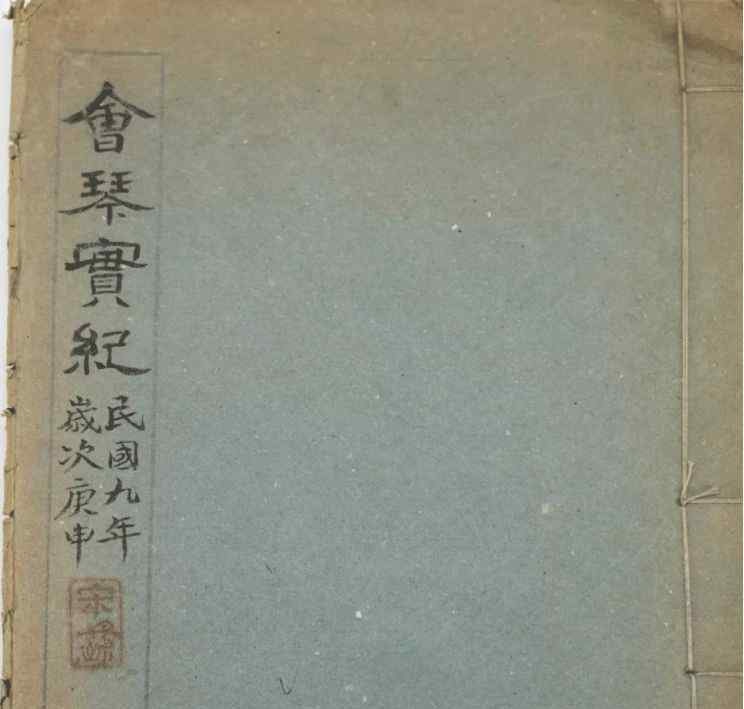 會琴實紀
民國九年
歲次庚申